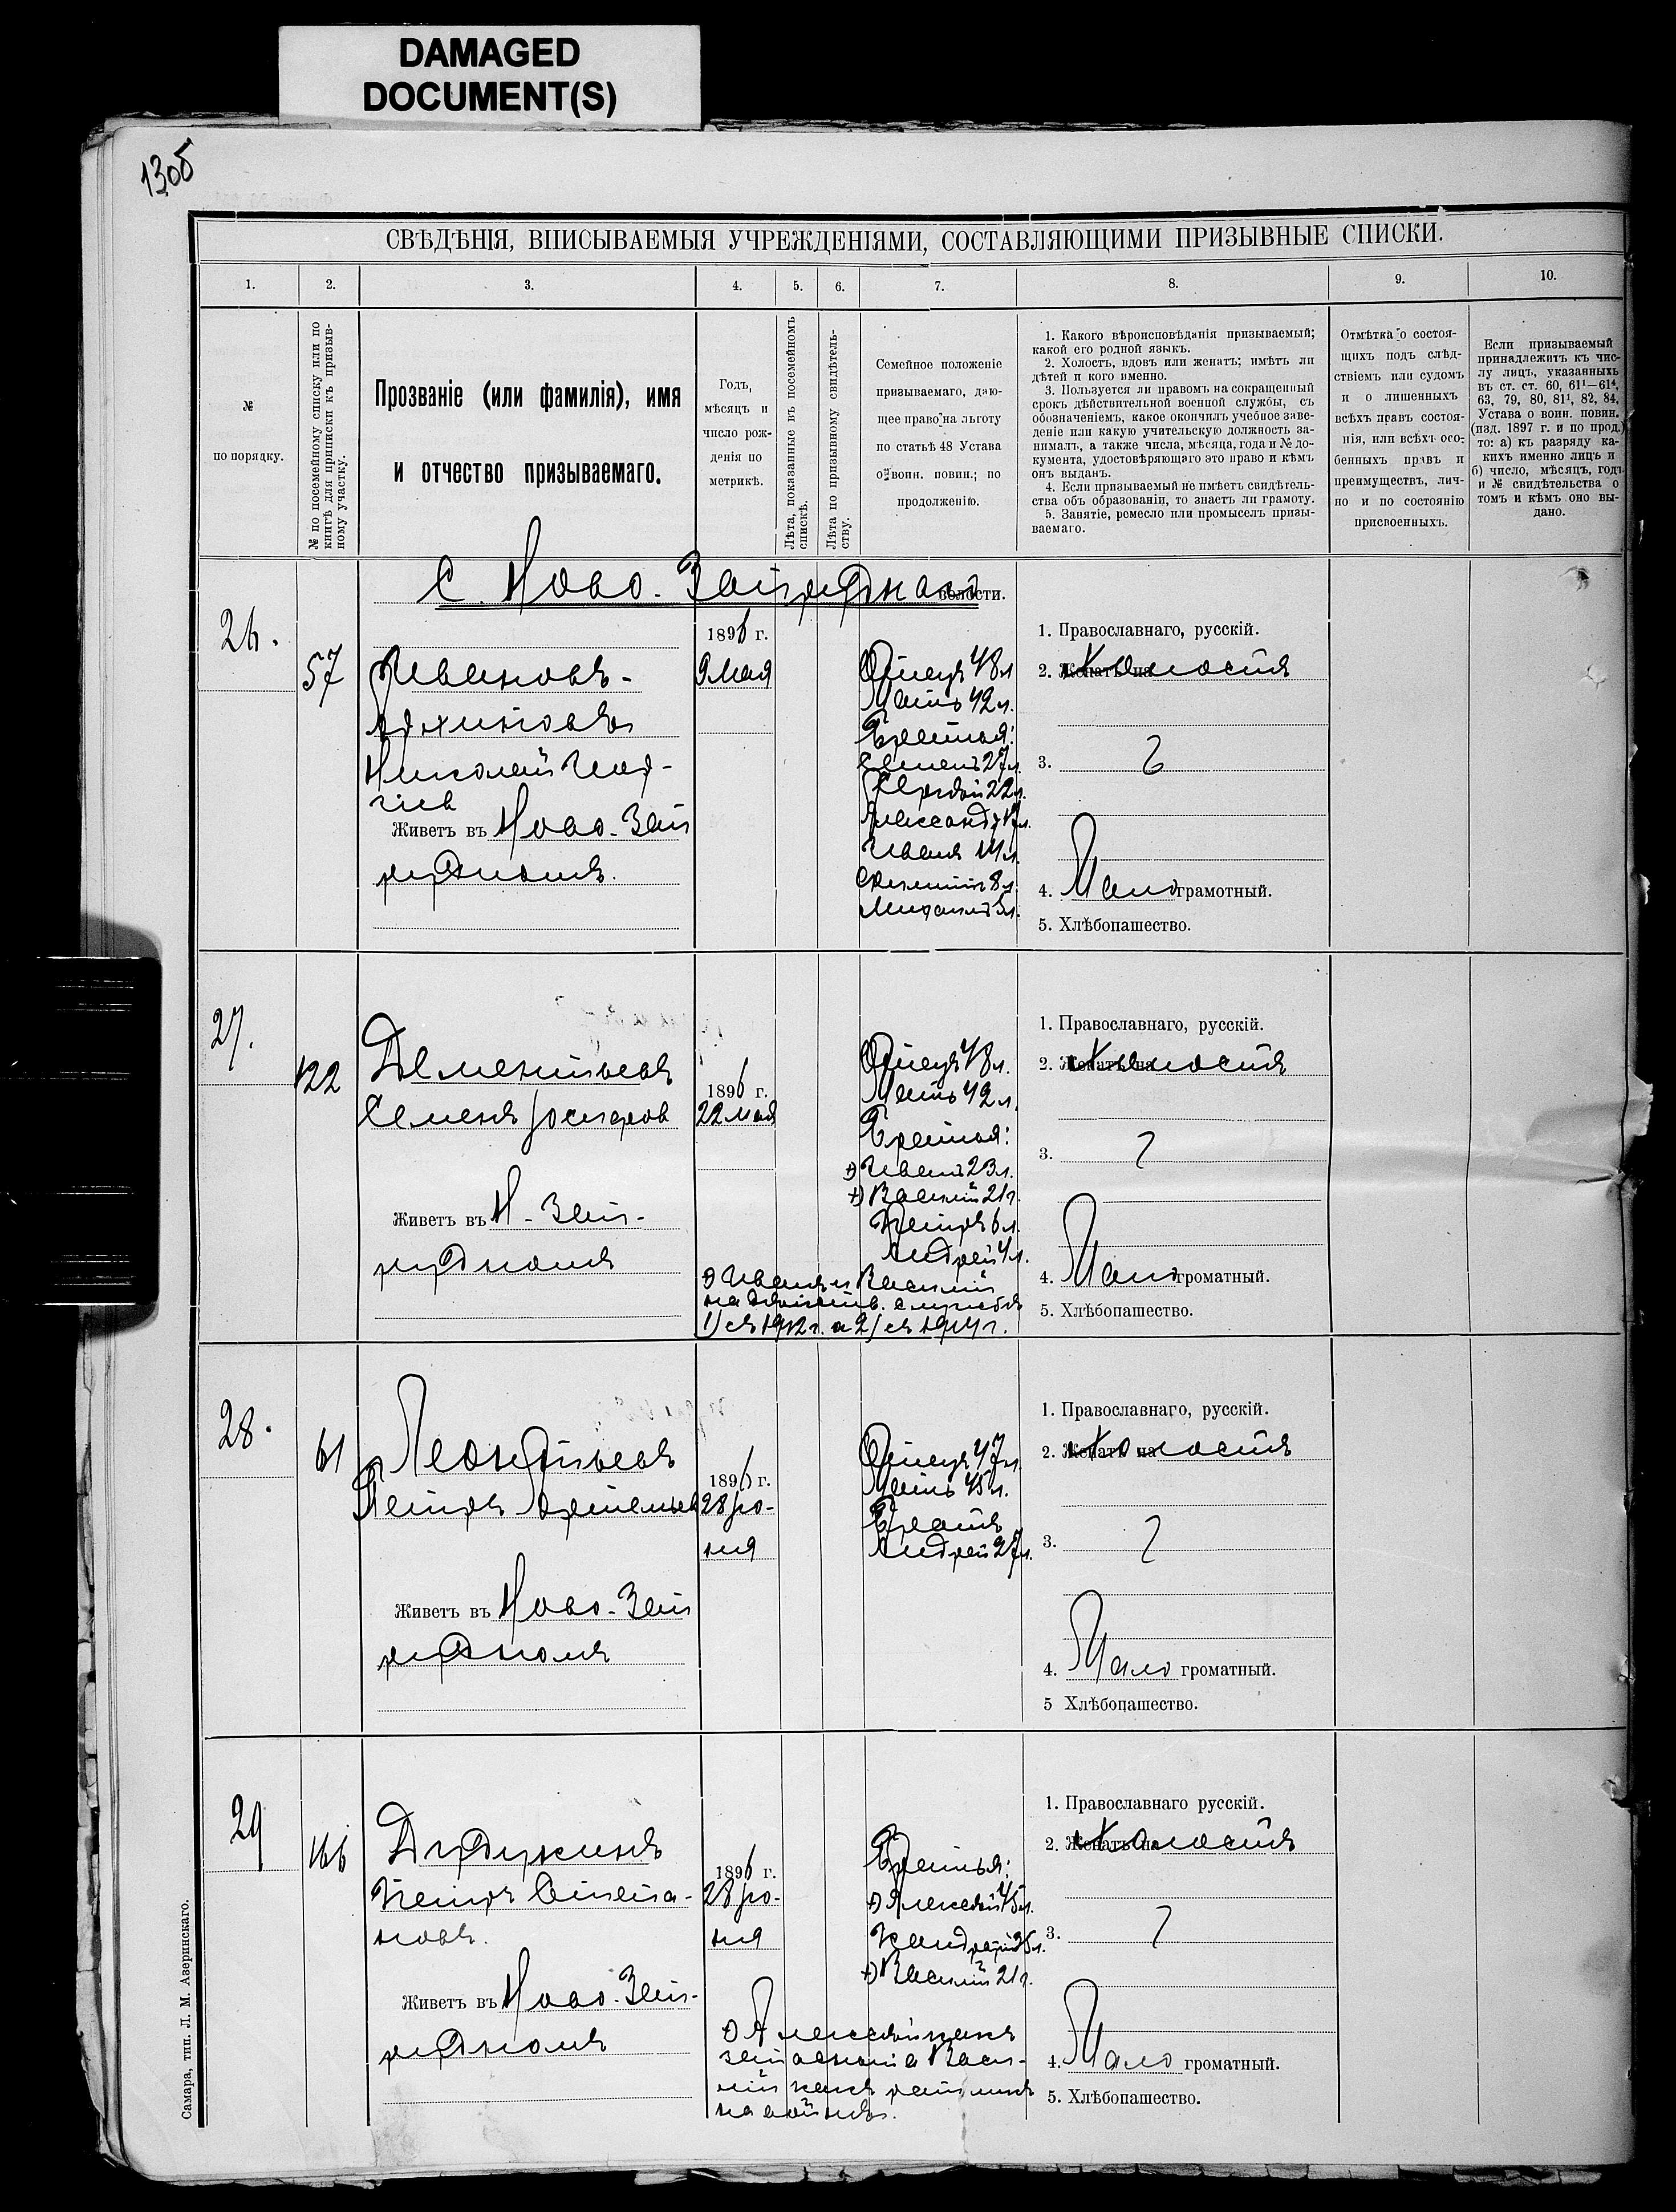 DAMAGED
DOCUMENT(S)
130б
СВѢДѢНІЯ, ВПИСЫВАЕМЫЯ УЧРЕЖДЕНІЯМИ, СОСТАВЛЯЮЩИМИ ПРИЗЫВНЫЕ СПИСКИ.
1. 2. 3. 4. 5. 6. 7. 8. 9. 10.
№
по порядку.
№ по посемейному списку или по
книгѣ для приписки къ призыв-
ному участку.
Прозваніе (или фамилія), имя
и отчество призываемаго.
Годъ,
мѣсяцъ и
число рож-
денія по
метрикѣ.
Лѣта, показанные въ посемейномъ
спискѣ.
Лѣта по призывному свидѣтель-
ству.
Семейное положеніе
призываемаго, даю-
щее право на льготу
по статьѣ 48 Устава
о воин. повин.; по
продолженію.
1. Какого вѣроисповѣданія призываемый;
какой его родной языкъ.
2. Холостъ, вдовъ или женатъ; имѣтъ ли
дѣтей и кого именно.
3. Пользуется ли правомъ на сокращенный
срокъ дѣйствительной военной службы, съ
обозначеніемъ, какое окончилъ учебное заве-
деніе или какую учительскую должность за-
нималъ, а также числа, мѣсяца, года и № до-
кумента, удостовѣряющаго это право и кѣмъ
онъ выданъ.
4. Если призываемый не имѣетъ свидѣтель-
ства объ образованіи, то знаетъ ли грамоту.
5. Занятіе, ремесло или промыселъ призы-
ваемаго.
Отмѣтка о состоя-
щихъ подъ слѣд-
ствіемъ или судомъ
и о лишенныхъ
всѣхъ правъ состоя-
нія, или всѣхъ осо-
бенныхъ правъ и
преимуществъ, лич-
но и по состоянію
присвоенныхъ.
Если призываемый
принадлежитъ къ чис-
лу лицъ, указанныхъ
въ ст. ст. 60, 61¹—61⁴,
63, 79, 80, 81¹, 82, 84,
Устава о воин. повин.
(изд. 1897 г. и по прод.)
то: а) къ разряду ка-
кихъ именно лицъ и
б) число, мѣсяцъ, годъ
и № свидѣтельства о
томъ и кѣмъ оно вы-
дано.
С. Ново-
волости.
26.
57
Ивановъ-
Николай
Живетъ въ Ново-Зап
1896 г.
9 мая
Отецъ 48 л.
Мать 42 л.
Братья:
Семенъ 27 л.
Сергѣй 22 л.
Александръ 17 л.
Иванъ 14 л.
8 л.
Михаилъ 5 л.
1. Православнаго, русскій.
2. Женатъ на Холостъ
3.
4. Малограмотный.
5. Хлѣбопашество.
27.
122
Дементьевъ
Семенъ Захаров
Живетъ въ Н-Зап-
1896 г.
22 мая
Отецъ 48 л.
Мать 42 л.
Братья:
Иванъ 23 л.
Василій 21 г.
Петръ 6 л.
Андрей 4 л.
Иванъ и Василій
на дѣйств. службѣ
1) съ 1912 г. а 2) съ 1914 г.
1. Православнаго, русскій.
2. Женатъ на Холостъ
3.
4. Мало громатный.
5. Хлѣбопашество.
28.
61
Леонтьевъ
Петръ Артемьев
Живетъ въ Ново-Зап
1896 г.
28 Ію-
ня
Отецъ 47 л.
Мать 45 л.
Братъ
Андрей 27 л.
1. Православнаго, русскій.
2. Женатъ на Холостъ
3.
4. Мало громатный.
5 Хлѣбопашество.
29
166
Петръ Степа-
новъ.
Живетъ въ Ново-Зап-
1896 г.
28 Ію-
ня
Братья:
Алексѣй 45 л.
Кандратій 35 л.
Василій 21 г.
Алексѣй какъ
запасный а Васи-
лій какъ ратникъ
на войнѣ.
1. Православнаго русскій.
2. Женатъ на Холостъ
3.
4. Мало громатный.
5. Хлѣбопашество.
Самара, тип. Л. М. Азеринскаго.